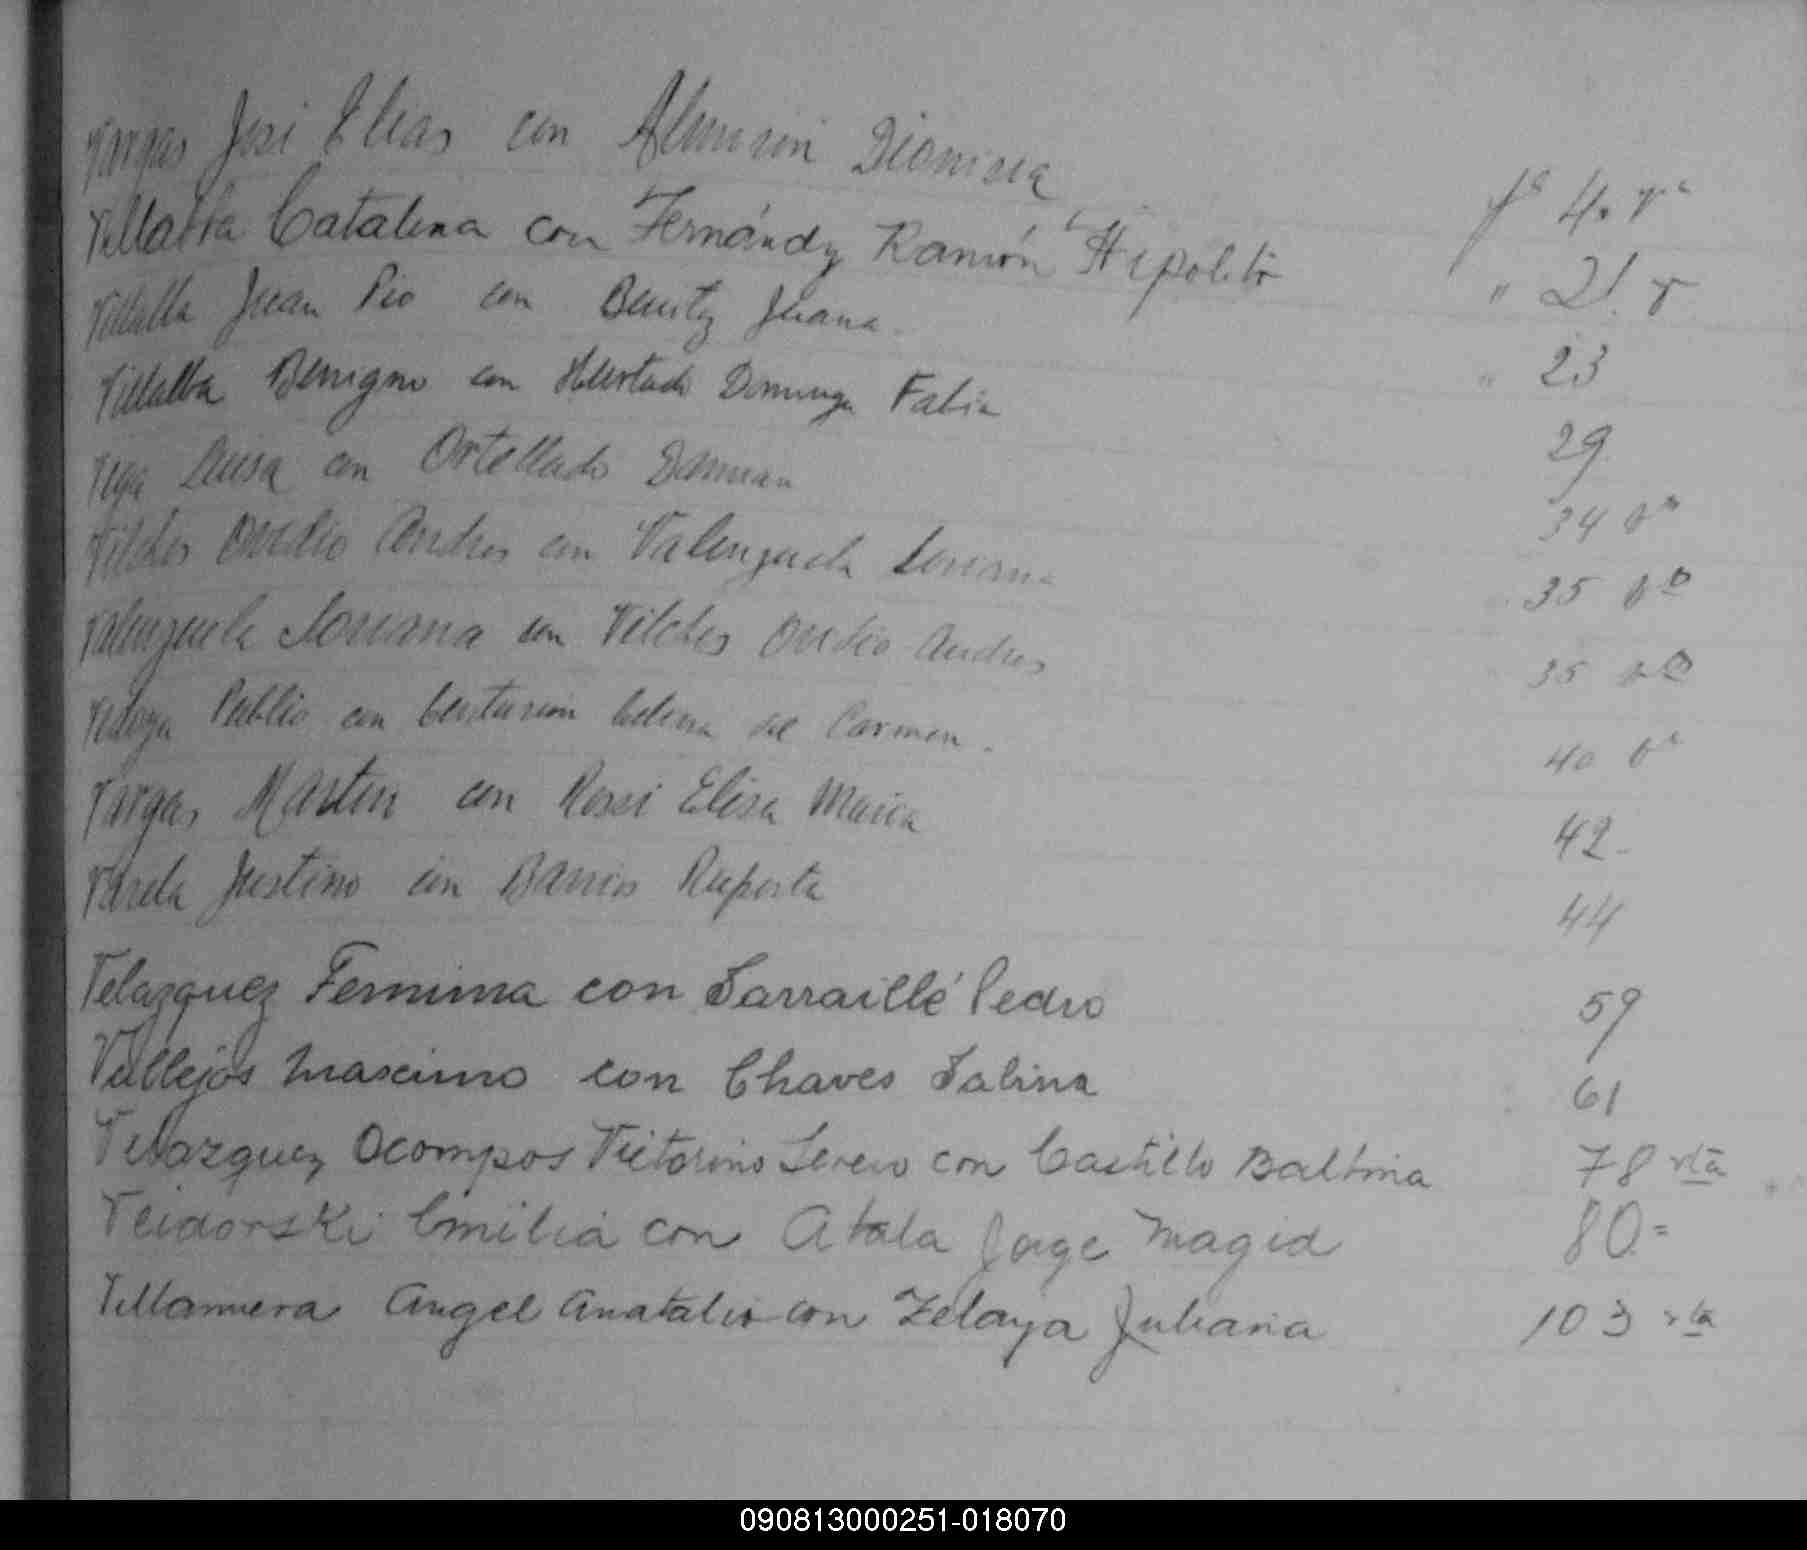 Vargas José Elias con Almirón Dionisia fº 4. vª
Villalba Catalina con Fernández Ramón Hipolito " 21. v
Villalba Juan Pio con Benitez Juana " 23
Villalba Benigno con Hurtado Dominga Fabia 29
Vega Luisa con Ortellado Damian 34 vª
Vilches Ovidio Andres con Valenzuela 35 vº
Valenzuela con Vilches Ovidio Andres 35 vº
Vedoya Publio con Centurión Celina del Carmen. 40 vª
Vargas Martin con Rossi Elisa Maria 42
Varela Justino con Barrios Ruperta 44
Velazquez Fermina con Sarraillé Pedro 59
Vallejos Maximo con Chaves Salina 61
Velazquez Ocampos Victorino Severo con Castillo Balbina 78 vta
Veidorski Emilia con Atala Jorge Magid 80 =
Villanueva Angel Anatalio con Zelaya Juliana 103 vta
090813000251-018070